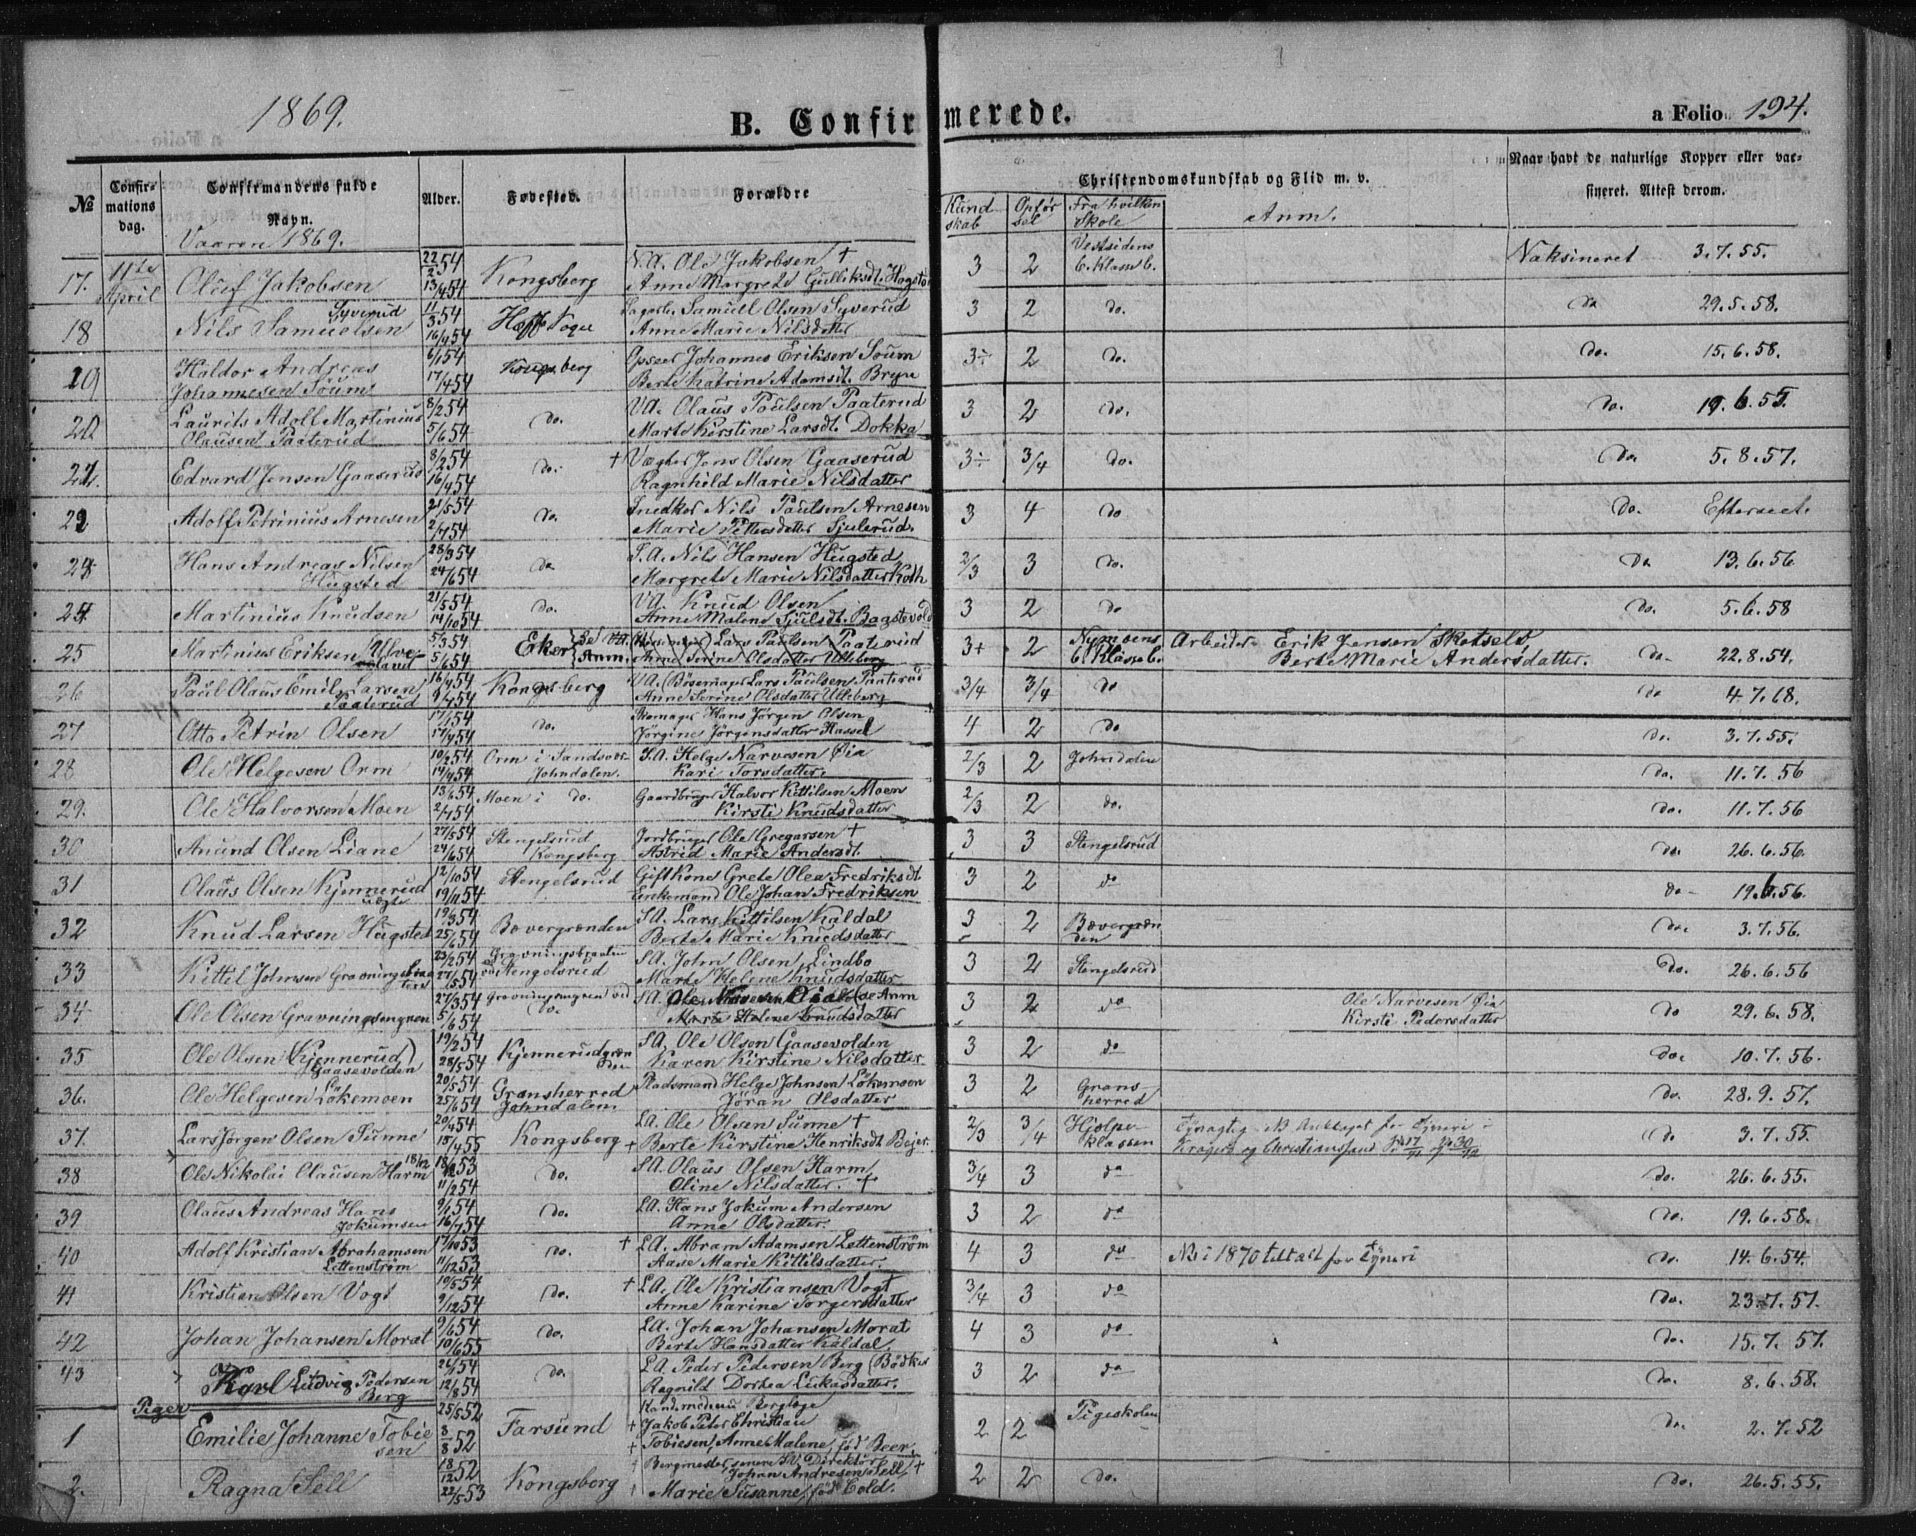 1869.
B. Confirmerede.
a Folio 194.
№
Confirmations dag.
Confirmandens fulde Navn.
Alder.
Fødested.
Forældre
Christendomskundskab og Flid m. v.
Naar havt de naturlige Kopper eller vaccineret. Attest derom.
Kundskab
Opførsel
Fra hvilken Skole
Anm.
Vaaren 1869.
17. 11te April Oluf Jakobsen 22/2 54 13/4 54 Kongsberg Ole Jakobsen † Anne Margrete Gulliksdt. 3 2 Vestsidens 6. Klasse b. Vaksineret 3.7.55.
18 Nils Samuelsen Syverud 11/3 54 16/4 54 Samuel Olsen Syverud Anne Marie Nilsdatter 3 2 do. do 29.5.58.
19 Haldor Andreas Johannesen Soum 6/1 54 17/4 54 Kongsberg Johannes Eriksen Soum Berte Katrine Adamsdt. Bryn 3÷ 2 do. do. 15.6.58.
20 Laurits Adolf Martinius Olausen Paaterud 8/2 54 5/6 54 do. VA. Olaus Paulsen Paaterud Marte Kirstine Larsdt. Dokka 3 2 do. do. 19.6.55.
21. Edvard Jensen Gaaserud 8/2 54 16/4 54 do. † Vægter Jens Olsen Gaaserud Ragnhild Marie Nilsdatter 3÷ 3/4 do. do 5.8.57.
22 Adolf Petrinius Arnesen 21/5 54 2/7 54 do. Snedker Nils Paulsen Arnesen Marie Pettersdatter Sjulerud. 3 4 do do. Efterseet.
Hans Andreas Nilsen Hugsted 28/3 54 24/6 54 do Nils Hansen Hugsted Margrete Marie Nilsdatter Koth 2/3 3 do. do 13.6.56
24 Martinius Knudsen 21/5 54 14/10 54 do. VA. Knud Olsen Anne Malene Sjulsdt. Bagstevold 3 2 do do. 5.6.58
25 Martinius Eriksen 5/3 54 5/6 54 Eker Se Anm. Lars Paulsen Paaterud Anne Serine Olsdatter Ulleberg 3+ 2 Nymoens 6. Klasse b. Arbeider Erik Jensen Skotselv Berte Marie Andersdatter. do- 22.8.54.
26 Paul Olaus Emil Larsen Paaterud 16/4 54 9/7 54 Kongsberg VA. (Bøsemager Lars Paulsen Paaterud Anne Serine Olsdatter Ulleberg 3/4 3/4 do do 4.7.68.
27 Otto Petrin Olsen 17/1 54 17/4 54 do. Skomager Hans Jørgen Olsen Jørgine Jørgensdatter Hassel 4 2 do do. 3.7.55.
28 Ole Helgesen Orm 10/2 54 14/4 54 Orm i Sandsvær Johndalen. S.A. Helge Narvesen Øia Kari Torsdatter. 2/3 2 Johndalen do. 11.7.56
29. Ole Halvorsen Moen 13/6 54 2/7 54 Moen i do. Gaardbruger Halvor Kittilsen Moen Kirsti Knudsdatter 2/3 2 do. do. 11.7.56
30 Anund Olsen Liane 27/5 54 24/6 54 Stengelsrud Kongsberg Jordbruger Ole Gregarsen † Astrid Marie Andersdt. 3 3 Stengelsrud do. 26.6.56.
31 Olaus Olsen Kjennerud uægte 12/10 54 19/11 54 Stengelsrud Gift Kone Grete Olea Fredriksdt Enkemand Ole Johan Fredriksen 3 2 do do- 19.6.56.
32 Knud Larsen Hugsted 19/3 54 25/5 54 Bævergrænden SA. Lars Kittilsen Kaldal Berte Marie Knudsdatter 3 2 Bævergrænden do. 3.7.56.
33 Kittil Johnsen 23/2 54 27/5 54 Stengelsrud SA. John Olsen Lindbo Marte Helene Knudsdatter 3 2 Stengelsrud do. 26.6.56
34 Ole Olsen Gravningsengren 27/3 54 5/6 54 Gravningsengren ved do. SA. Ole Narvesen Øia (se Anm Marte Helene Knudsdatter 3 2 do Ole Narvesen Øia Kirsti Pedersdatter do 29.6.58.
35 Ole Olsen (Kjennerud) Gaasevolden 19/2 54 28/5 54 Kjennerudgrænden SA. Ole Olsen Gaasevolden Karen Kirstine Nilsdatter. 3 2 do do. 10.7.56.
36. Ole Helgesen Løkemoen 20/5 54 25/6 54 Gransherred Johndalen. Pladsmand Helge Johnsen Løkemoen Jøran Olsdatter 3 2 Gransherred do. 28.9.57.
37. Lars Jørgen Olsen Sunne 20/4 54 18/4 55 Kongsberg LA. Ole Olsen Sunne † † Berte Kirstine Henriksdt Bejer. 2/3 3/4 Hjelpeklassen Tyvagtig - NB Anklaget for Tyveri i Kragerø og Christianssand do. 3.7.55.
38 Ole Nikolai Olausen Harm 18/12 53 11/2 54 do. SA. Olaus Olsen Harm Oline Nilsdatter. † 3/4 3 do do. 26.6.55.
39 Olaus Andreas Hans Jokumsen 9/1 54 16/7 54 do. LA. Hans Jokum Andersen Anne Olsdatter. 3 2 do do. 19.6.58.
40 Adolf Kristian Abrahamsen Lettenstrøm 17/10 53 11/12 53 do. † LA. Abram Adamsen Lettenstrøm Aase Marie Kittilsdatter. 4 3 do NB i 1870 tiltalt for Tyveri do. 14.6.54.
41 Kristian Olsen Vogt 10/5 54 9/12 54 do. † LA. Ole Kristiansen Vogt Anne Karine Torgersdatter 3/4 3 do do. 23.7.57.
42 Johan Johansen Morat 9/6 54 10/6 55 do. LA. Johan Johansen Morat Berte Hansdatter Kaldal. 4 3 do do. 15.7.57.
43 Karl Ludvig Pedersen Berg 26/1 54 12/8 54 do. LA. Peder Pedersen Berg (Bødker Ragnild Dorthea Lukasdatter. 3 2 do do. 8.6.58.
Piger
1 Emilie Johanne Tobiesen 25/5 52 8/8 52 Farsund Kand. med. nu Berglæge † Jakob Peter Christian † Tobiesen, Anne Malene, fød Beer. 2 2 Pigeskolen do. 2.7.52
2. Ragna Sell 18/12 52 22/5 53 Kongsberg Bergmester, senere SV. Direktør Johan Andresen Sell † † Marie Susanne, fød Cold. 2 2 do. do. 26.5.55.